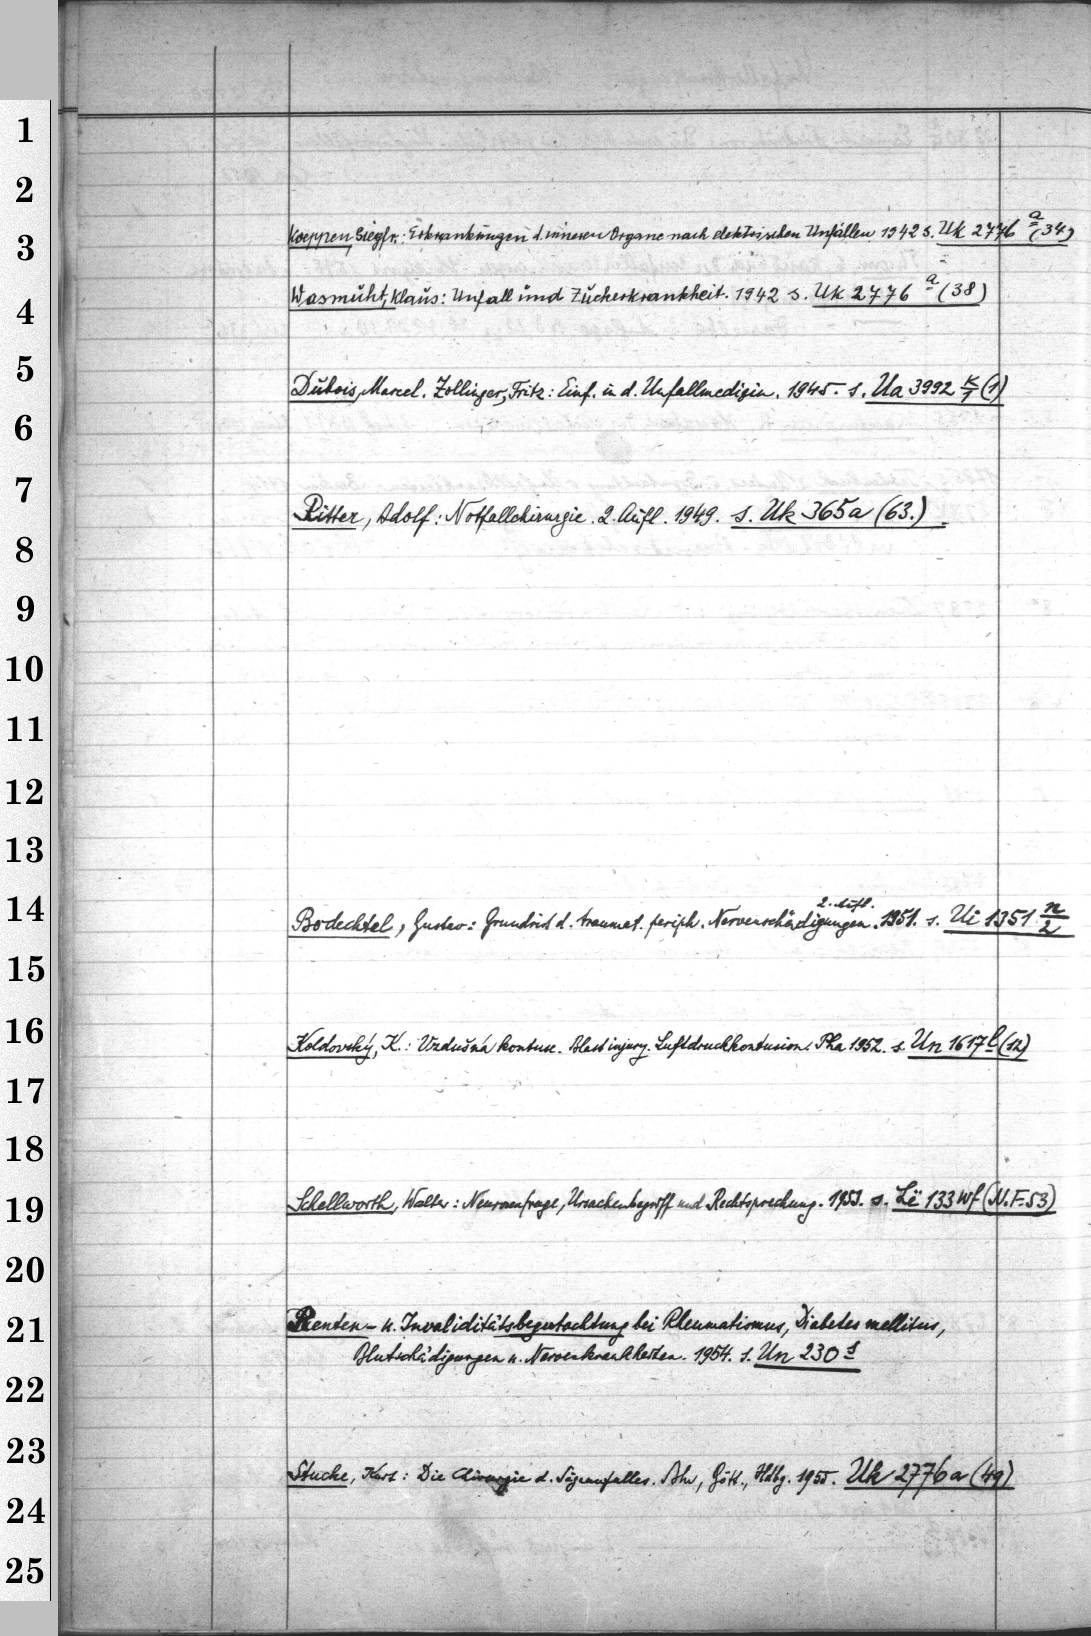 1
2
3
4
5
6
7
8
9
10
11
12
13
14
15
16
17
18
19
20
21
22
23
24
25
Koeppen, Siegfr.: Erkrankungen d. inneren Organe nach elektrischen Unfällen 1942 s. Uk 2776 a (34)
Wasmüht, Klaus: Unfall und Zuckerkrankheit. 1942 s. Uk 2776 a (38)
Dubois, Marcel. Zollinger, Fritz: Einf. in d. Unfallmedizin. 1945. s. Ua 3992 K/7 (1)
Ritter, Adolf: Notfallchirurgie. 2. Aufl. 1949. s. Uk 365a (63.)
2. Aufl.
Bodechtel, Gustav: Grundriß d. traumat. periph. Nervenschädigungen. 1951. s. Ui 1351 n/2
Koldovský, K.: Vzdušná kontuse. Blast injury. Luftdruckkontusion. Pha 1952. s. Un 1617 l (12)
Schellworth, Walter: Neurosenfrage, Ursachenbegriff und Rechtsprechung. 1953. s. Lë 133 wf (N.F. 53)
Renten- u. Invaliditätsbegutachtung bei Rheumatismus, Diabetes mellitus,
Blutschädigungen u. Nervenkrankheiten. 1954. s. Un 230 s
Stucke, Kurt: Die Chirurgie d. Sägeunfalles. Bln, Gött., Hdbg. 1955. Uk 2776 a (49)